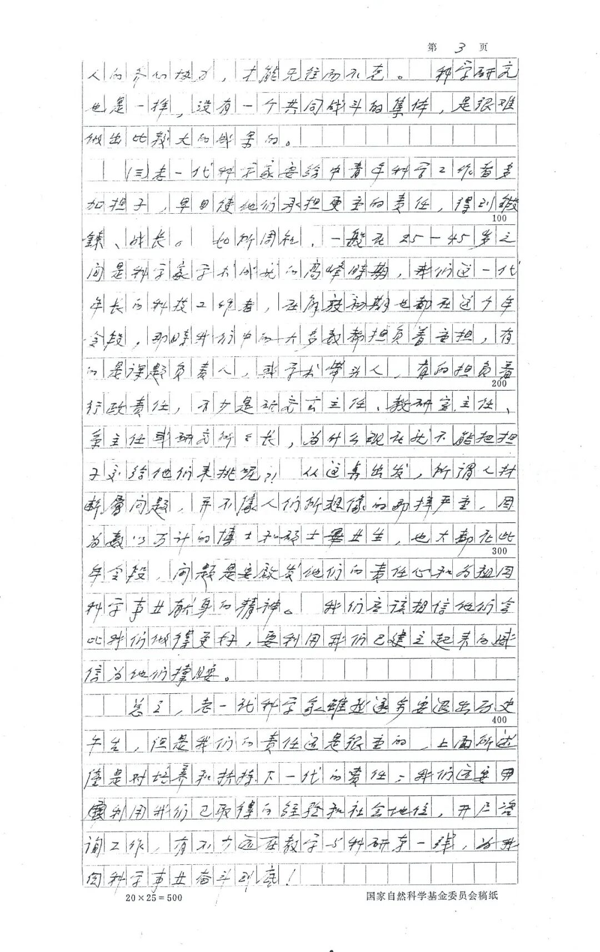 第 3 页
人的齐心协力，才能无往而不克。 科学研究
也是一样，没有一个共同战斗的集体，是很难
做出比较大的成果的。
(三)老一代科学家要给中青年科学工作者多
加担子，早日使他们承担更重的责任，得到锻
100
鍊、成长。 如所周知，一般在25—45岁之
间是科学家学术成就的高峰时期，我们这一代
年长的科技工作者，在解放初期也都在这个年
令段，那时我们中的大多数都担负着重担，有
的是课题负责人，或学术带头人，有的担负着
200
行政责任，不少是研究室主任、教研室主任、
系主任或研究所所长，为什么现在就不能把担
子交给他们来挑呢？！ 从这点出发，所谓人材
断层问题，并不像人们所想像的那样严重，因
为数以万计的博士和硕士毕业生，也大都在此
300
年令段，问题是要启发他们的责任心和为祖国
科学事业献身的精神。 我们应该相信他们会
比我们做得更好，要利用我们已建立起来的威
信为他们撑腰。
总之，老一代科学家虽然逐步要退出历史
400
午台，但是我们的责任还是很重的，上面所述
的是对培养和扶持下一代的责任；我们还要用
利用我们已取得的经验和社会地位，开展咨
询工作，有不少还在教学与科研第一线，为我
国科学事业奋斗到底！
20×25=500 国家自然科学基金委员会稿纸